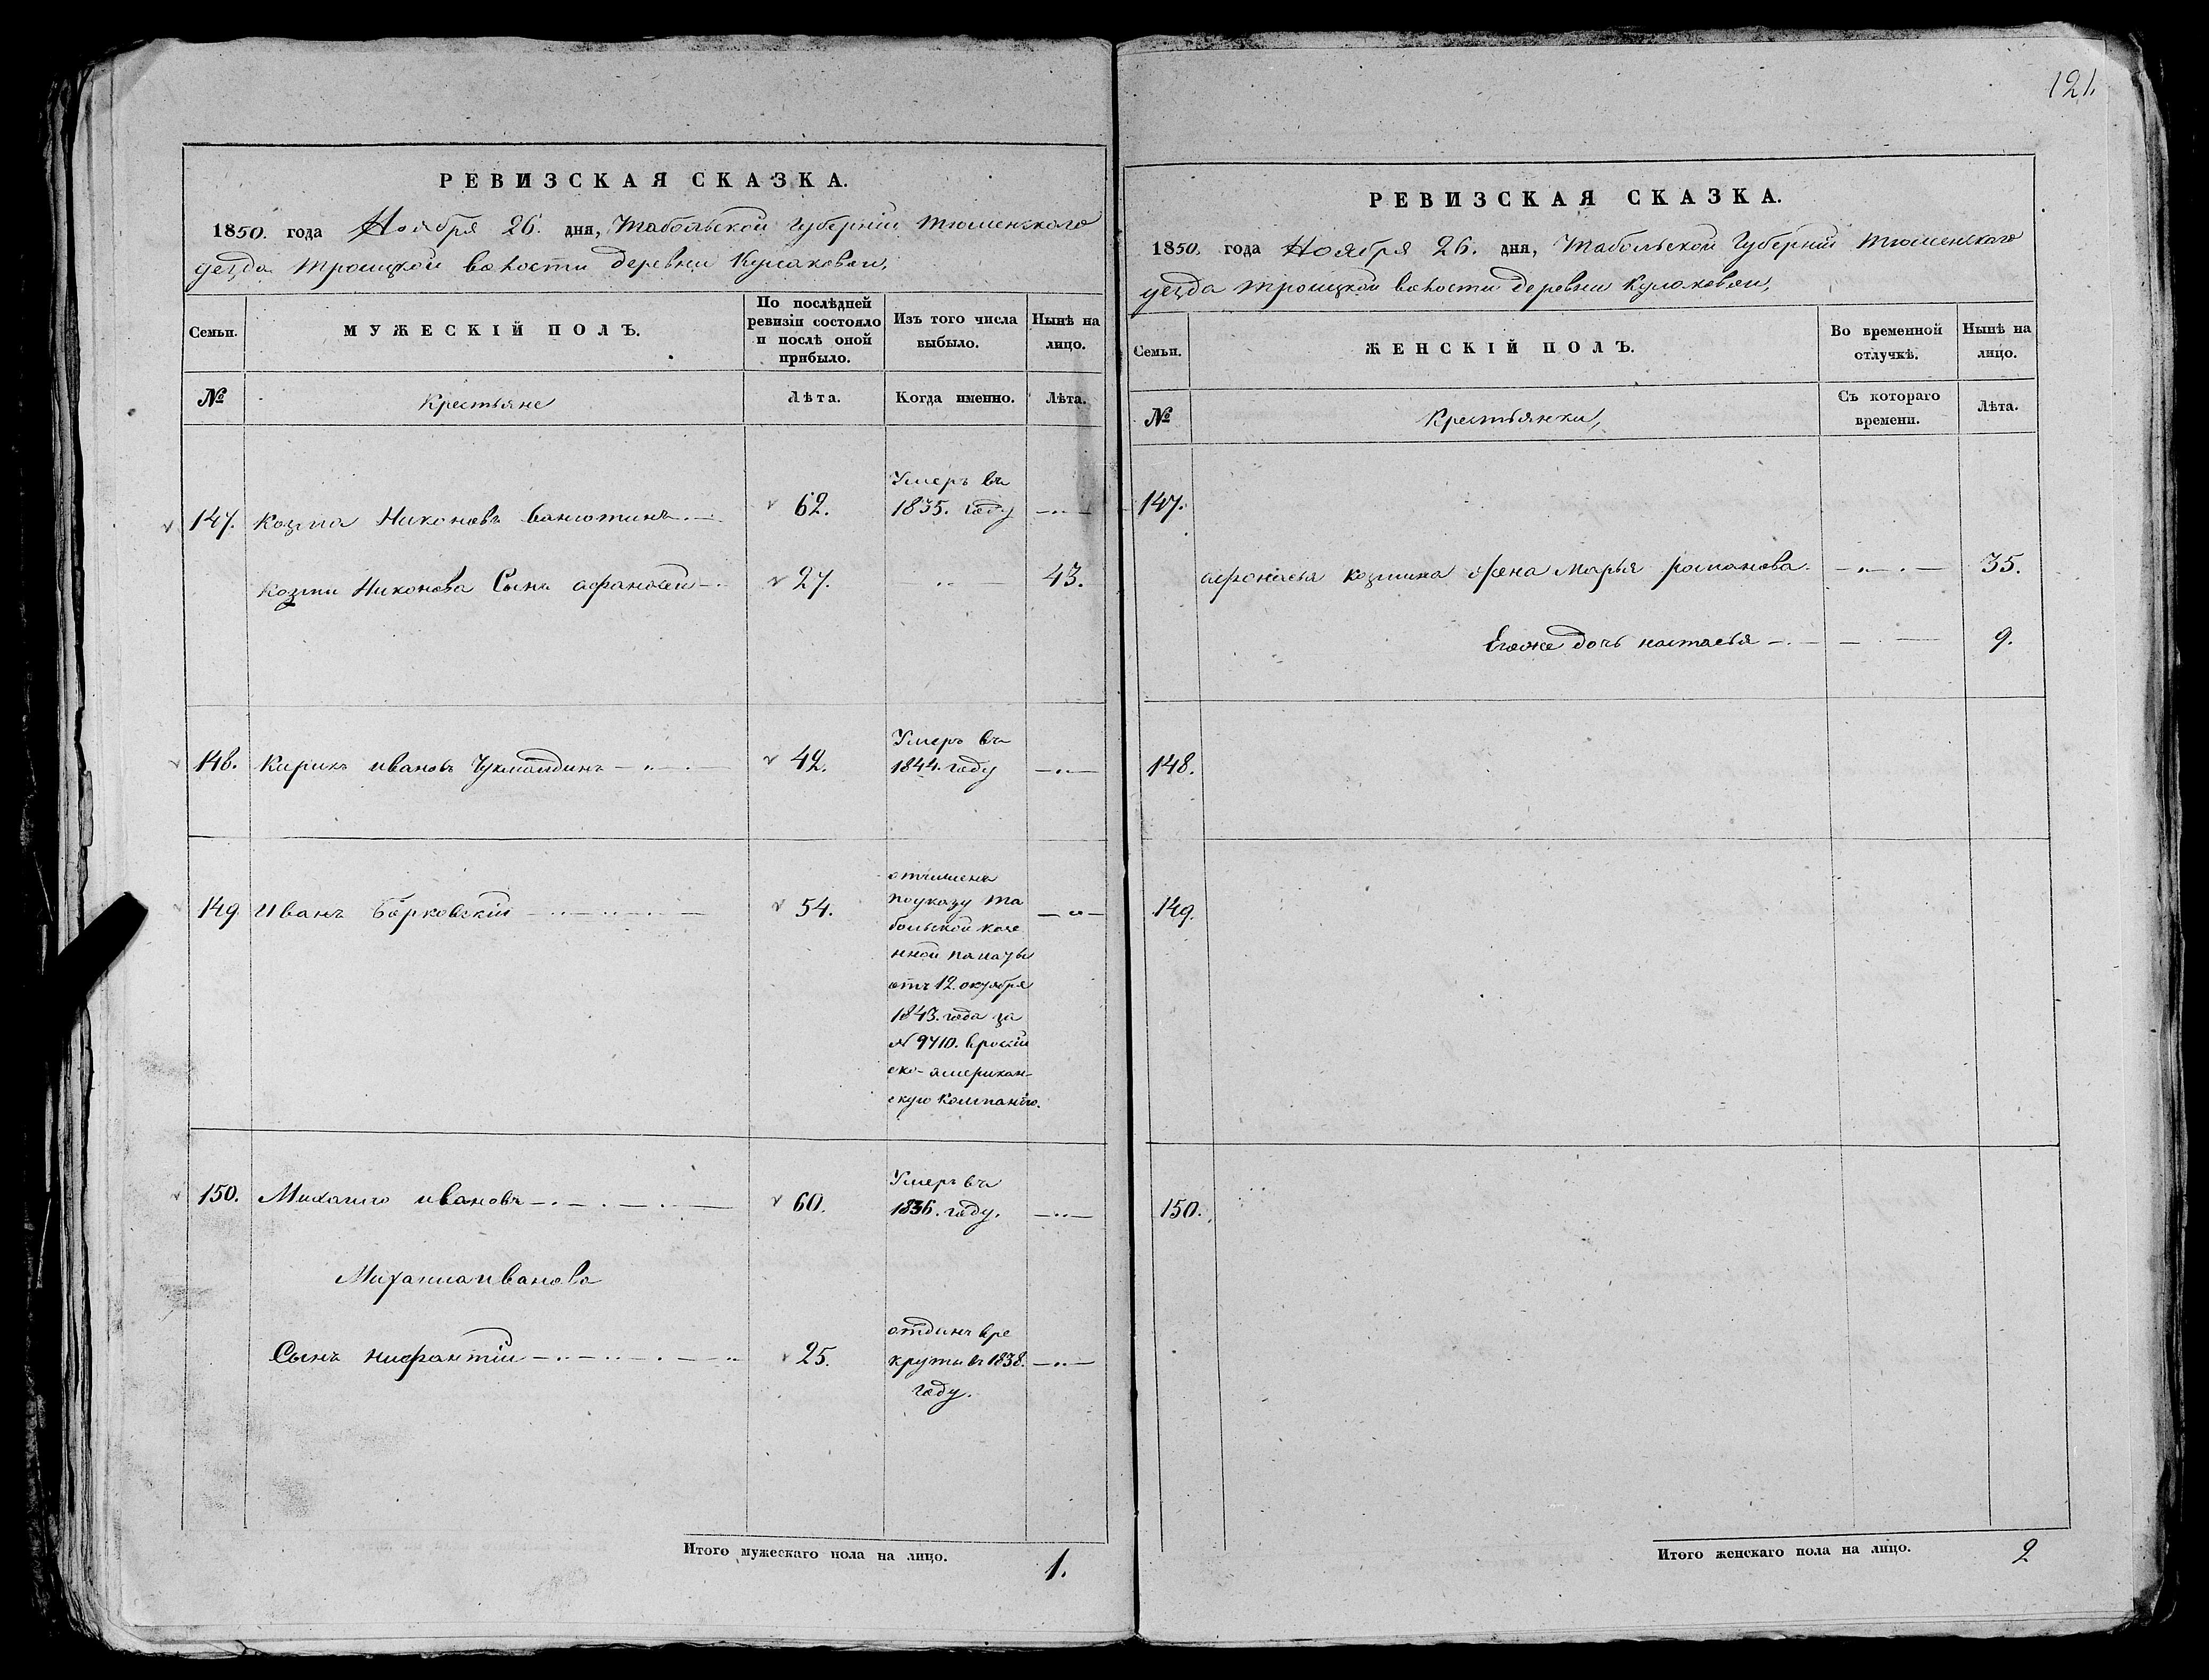 121.
РЕВИЗСКАЯ СКАЗКА.
1850. года Ноября 26. дня, Табольской губернии Тюменского
уезда Троицкой волости деревни Кулаковой,
Семьи.
МУЖЕСКІЙ ПОЛЪ.
По послѣдней
ревизіи состояло
и послѣ оной
прибыло.
Изъ того числа
выбыло.
Нынѣ на
лицо.
№
Крестьяне
Лѣта.
Когда именно.
Лѣта.
Умеръ въ
147. Козма Никоновъ 62. 1835. году
Козмы Никонова Сынъ афанасей 27. 43.
Умеръ въ
148. Кирикъ ивановъ 42. 1844. году
149 Иванъ Борковскій 54.
отчисленъ
поуказу та
больской казе
нной палаты
отъ 12. октября
1843. года за
№ 9710. вросій
ско-американ-
скую компанію.
Умеръ въ
150. Михайло ивановъ 60. 1836. году.
Михайла иванова
отданъ вре
Сынъ нифантій 25. круты въ 1838.
году.
Итого мужескаго пола на лицо. 1.
РЕВИЗСКАЯ СКАЗКА.
1850. года Ноября 26. дня, Табольской Губерніи Тюменскаго
уезда Троицкой волости деревни Кулаковой,
Семьи.
ЖЕНСКІЙ ПОЛЪ.
Во временной
отлучкѣ.
Нынѣ на
лицо.
№
Крестьянки,
Съ котораго
времени.
Лѣта.
147.
афонасья козмина жена марья романова. 35.
Егоже дочь настасья 9.
148.
149.
150.
Итого женскаго пола на лицо. 2